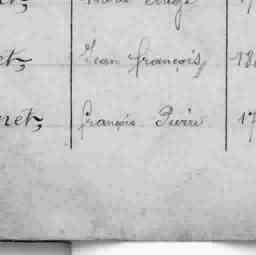 et, Jean françois, 18
net, françois Pierre 17